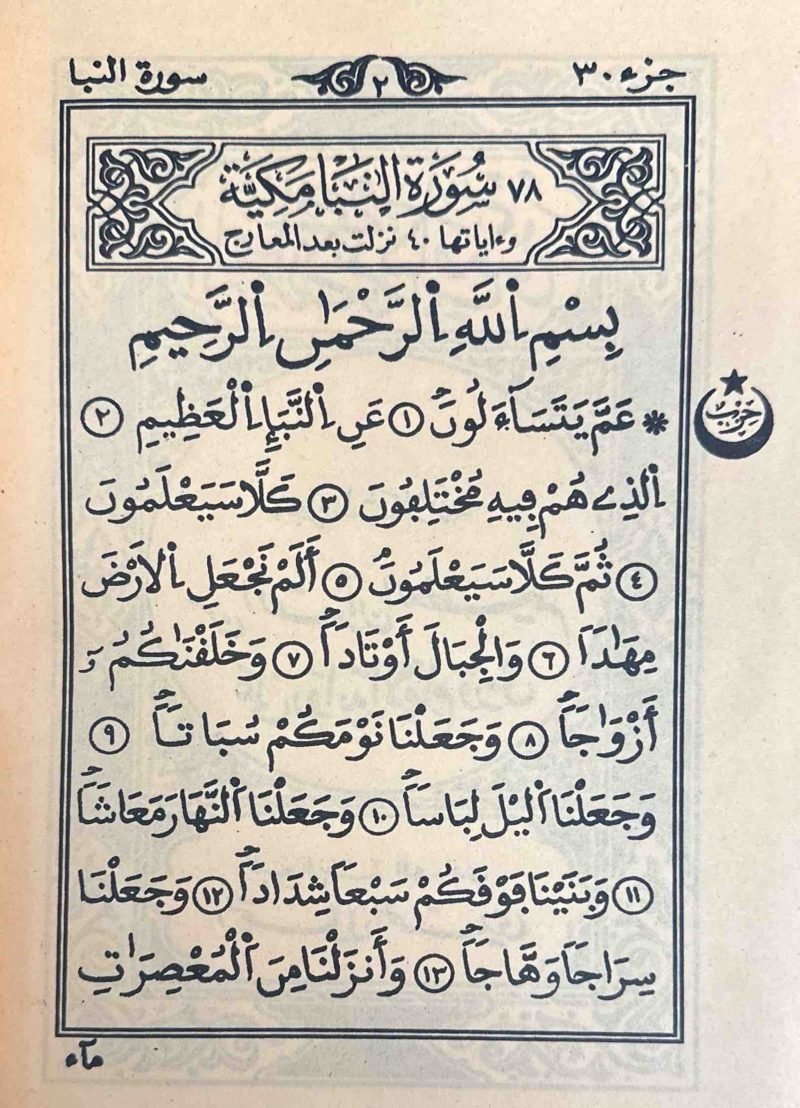 جزء ٣٠ ٢ سورة النبا
٧٨ سُورَةُ النَّبَإِ مَكِّيَّة
وءاياتها ٤٠ نزلت بعد المعارج
بِسْمِ اِ۬للَّهِ اِ۬لرَّحْمَٰنِ اِ۬لرَّحِيمِ
* عَمَّ يَتَسَآءَلُونَۖ ١ عَنِ اِ۬لنَّبَإِ اِ۬لْعَظِيمِ ٢
حزب
اِ۬لذِے هُمْ فِيهِ مُخْتَلِفُونَ ٣ كَلَّا سَيَعْلَمُونَ
٤ ثُمَّ كَلَّا سَيَعْلَمُونَۖ ٥ أَلَمْ نَجْعَلِ اِ۬لَارْضَ
مِهَٰداٗ ٦ وَالْجِبَالَ أَوْتَاداٗۖ ٧ وَخَلَقْنَٰكُمُۥٓ
أَزْوَٰجاٗۖ ٨ وَجَعَلْنَا نَوْمَكُمْ سُبَاتاٗۖ ٩
وَجَعَلْنَا اَ۬ليْلَ لِبَاساٗۖ ١٠ وَجَعَلْنَا اَ۬لنَّهَارَ مَعَاشاٗۖ
١١ وَبَنَيْنَا فَوْقَكُمْ سَبْعاٗ شِدَاداٗۖ ١٢ وَجَعَلْنَا
سِرَاجاٗ وَهَّاجاٗۖ ١٣ وَأَنزَلْنَا مِنَ اَ۬لْمُعْصِرَٰتِ
مآء